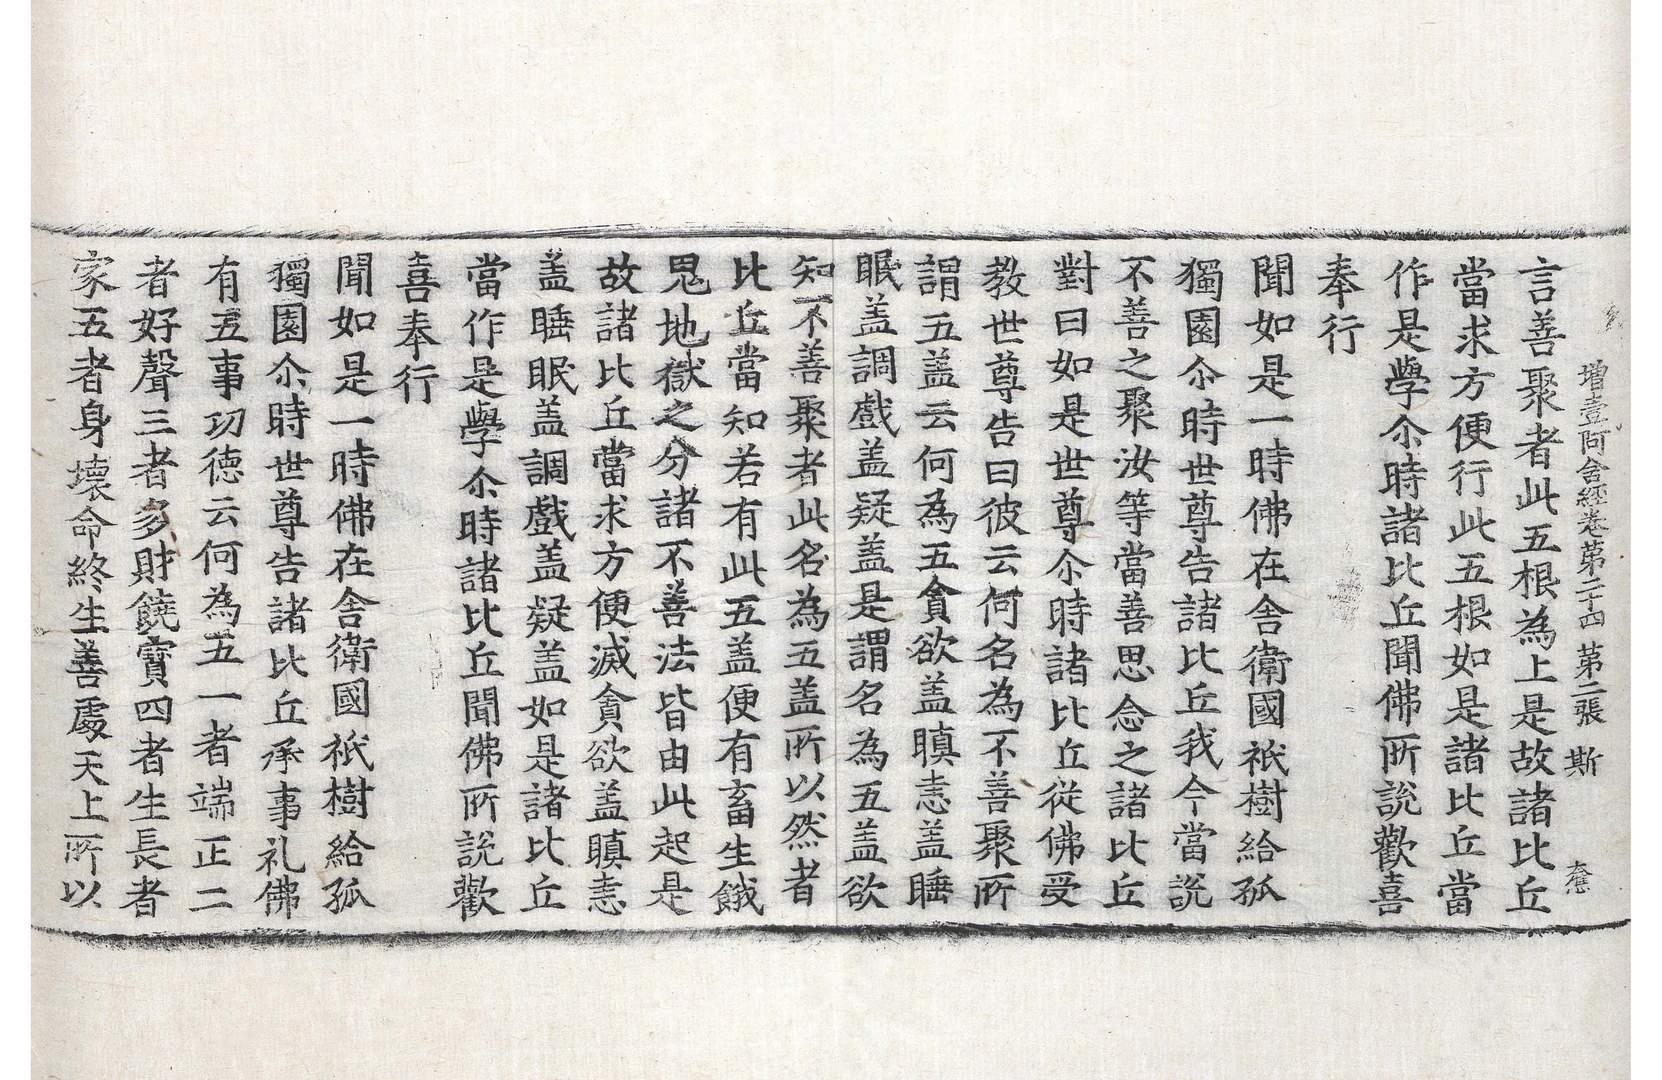 增壹阿含經卷第二十四 第二張 斯
言善聚者此五根為上是故諸比丘
當求方便行此五根如是諸比丘當
作是學尒時諸比丘聞佛所說歡喜
奉行
聞如是一時佛在舍衛國祇樹給孤
獨園尒時世尊告諸比丘我今當說
不善之聚汝等當善思念之諸比丘
對曰如是世尊尒時諸比丘從佛受
教世尊告曰彼云何名為不善聚所
謂五盖云何為五貪欲盖瞋恚盖睡
眠盖調戲盖疑盖是謂名為五盖欲
知不善聚者此名為五盖所以然者
比丘當知若有此五盖便有畜生餓
鬼地獄之分諸不善法皆由此起是
故諸比丘當求方便滅貪欲盖瞋恚
盖睡眠盖調戲盖疑盖如是諸比丘
當作是學尒時諸比丘聞佛所說歡
喜奉行
聞如是一時佛在舍衛國祇樹給孤
獨園尒時世尊告諸比丘承事礼佛
有五事功德云何為五一者端正二
者好聲三者多財饒寶四者生長者
家五者身壞命終生善處天上所以